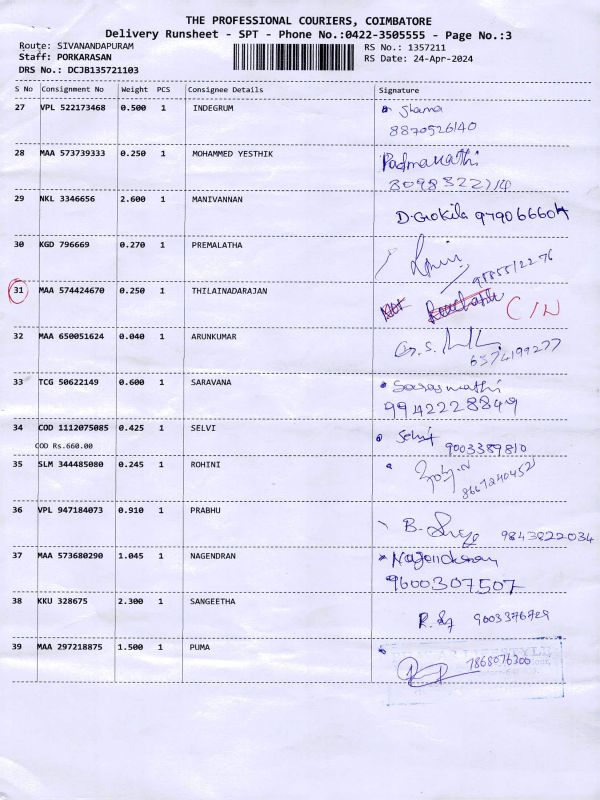 THE PROFESSIONAL COURIERS, COIMBATORE
Delivery Runsheet - SPT - Phone No.:0422-3505555 - Page No.:3
Route: SIVANANDAPURAM RS No.: 1357211
Staff: PORKARASAN RS Date: 24-Apr-2024
DRS No.: DCJB135721103
S No Consignment No Weight PCS Consignee Details Signature
27 VPL 522173468 0.500 1 INDEGRUM
8870526140
28 MAA 573739333 0.250 1 MOHAMMED YESTHIK Padmavathi
8098322714
29 NKL 3346656 2.600 1 MANIVANNAN D.Gokila 9790666604
30 KGD 796669 0.270 1 PREMALATHA
31 MAA 574424670 0.250 1 THILAINADARAJAN
32 MAA 650051624 0.040 1 ARUNKUMAR
6374199277
33 TCG 50622149 0.600 1 SARAVANA Saraswathi
9942228849
34 COD 1112075085 0.425 1 SELVI Selvi
COD Rs.660.00 9003389810
35 SLM 344485080 0.245 1 ROHINI
36 VPL 947184073 0.910 1 PRABHU B. 9843822034
37 MAA 573680290 1.045 1 NAGENDRAN Nagendran
9600307507
38 KKU 328675 2.300 1 SANGEETHA 9003376729
39 MAA 297218875 1.500 1 PUMA 7868076300